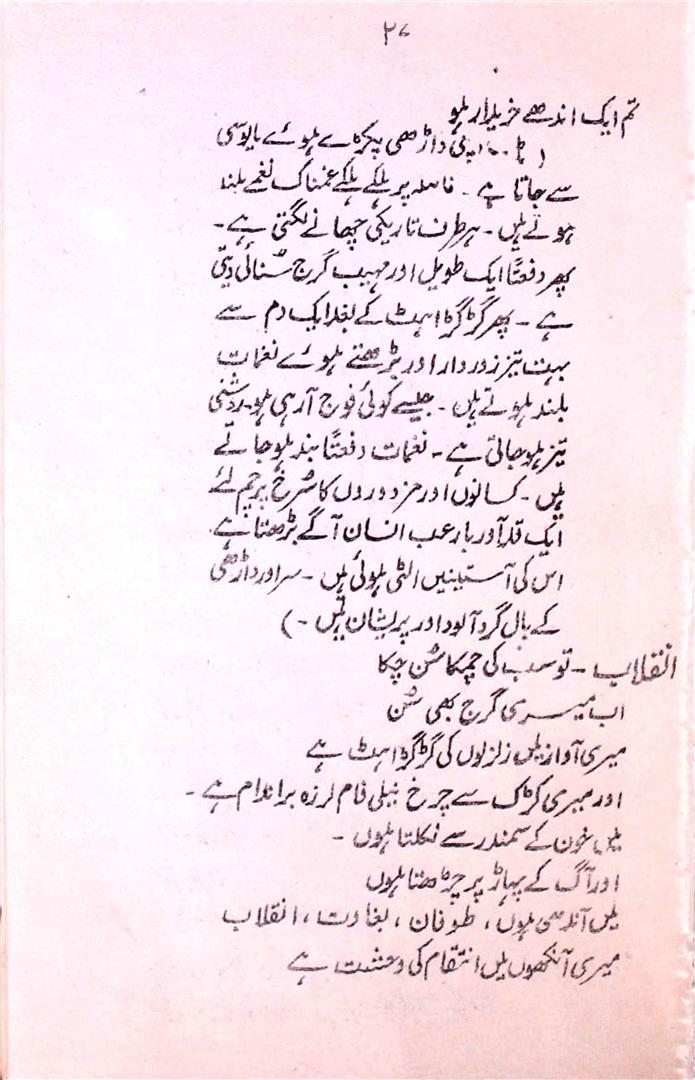 ۲۷
تم ایک اندھے خریدار ہو
( اپنی داڑھی پکڑے ہوئے مایوسی
سے جاتا ہے ۔ فاصلہ پر ہلکے ہلکے غمناک نغمے بلند
ہوتے ہیں ۔ ہر طرف تاریکی چھانے لگتی ہے ۔
پھر دفعتاً ایک طویل اور مہیب گرج سُنائی دیتی
ہے ۔ پھر گڑگڑاہٹ کے بعد ایک دم سے
بہت تیز زوردار اور بڑھتے ہوئے نغمات
بلند ہوتے ہیں ۔ جیسے کوئی فوج آرہی ہو ۔ روشنی
تیز ہوجاتی ہے ۔ نغمات دفعتاً بند ہوجاتے
ہیں ۔ کسانوں اور مزدوروں کا سُرخ پرچم لئے
ایک قدآور بارعب انسان آگے بڑھتا ہے
اس کی آستینیں الٹی ہوئی ہیں ۔ سر اور داڑھی
کے بال گرد آلود اور پریشان ہیں ۔ )
انقلاب ۔ تو سب کی چہکا سُن چکا
اب میری گرج بھی سُن
میری آواز میں زلزلوں کی گڑگڑاہٹ ہے
اور میری کڑک سے چرخ نیلی فام لرزہ براندام ہے ۔
میں خون کے سمندر سے نکلتا ہوں ۔
اور آگ کے پہاڑ پر چڑھتا ہوں
میں آندھی ہوں ، طوفان ، بغاوت ، انقلاب
میری آنکھوں میں انتقام کی وحشت ہے